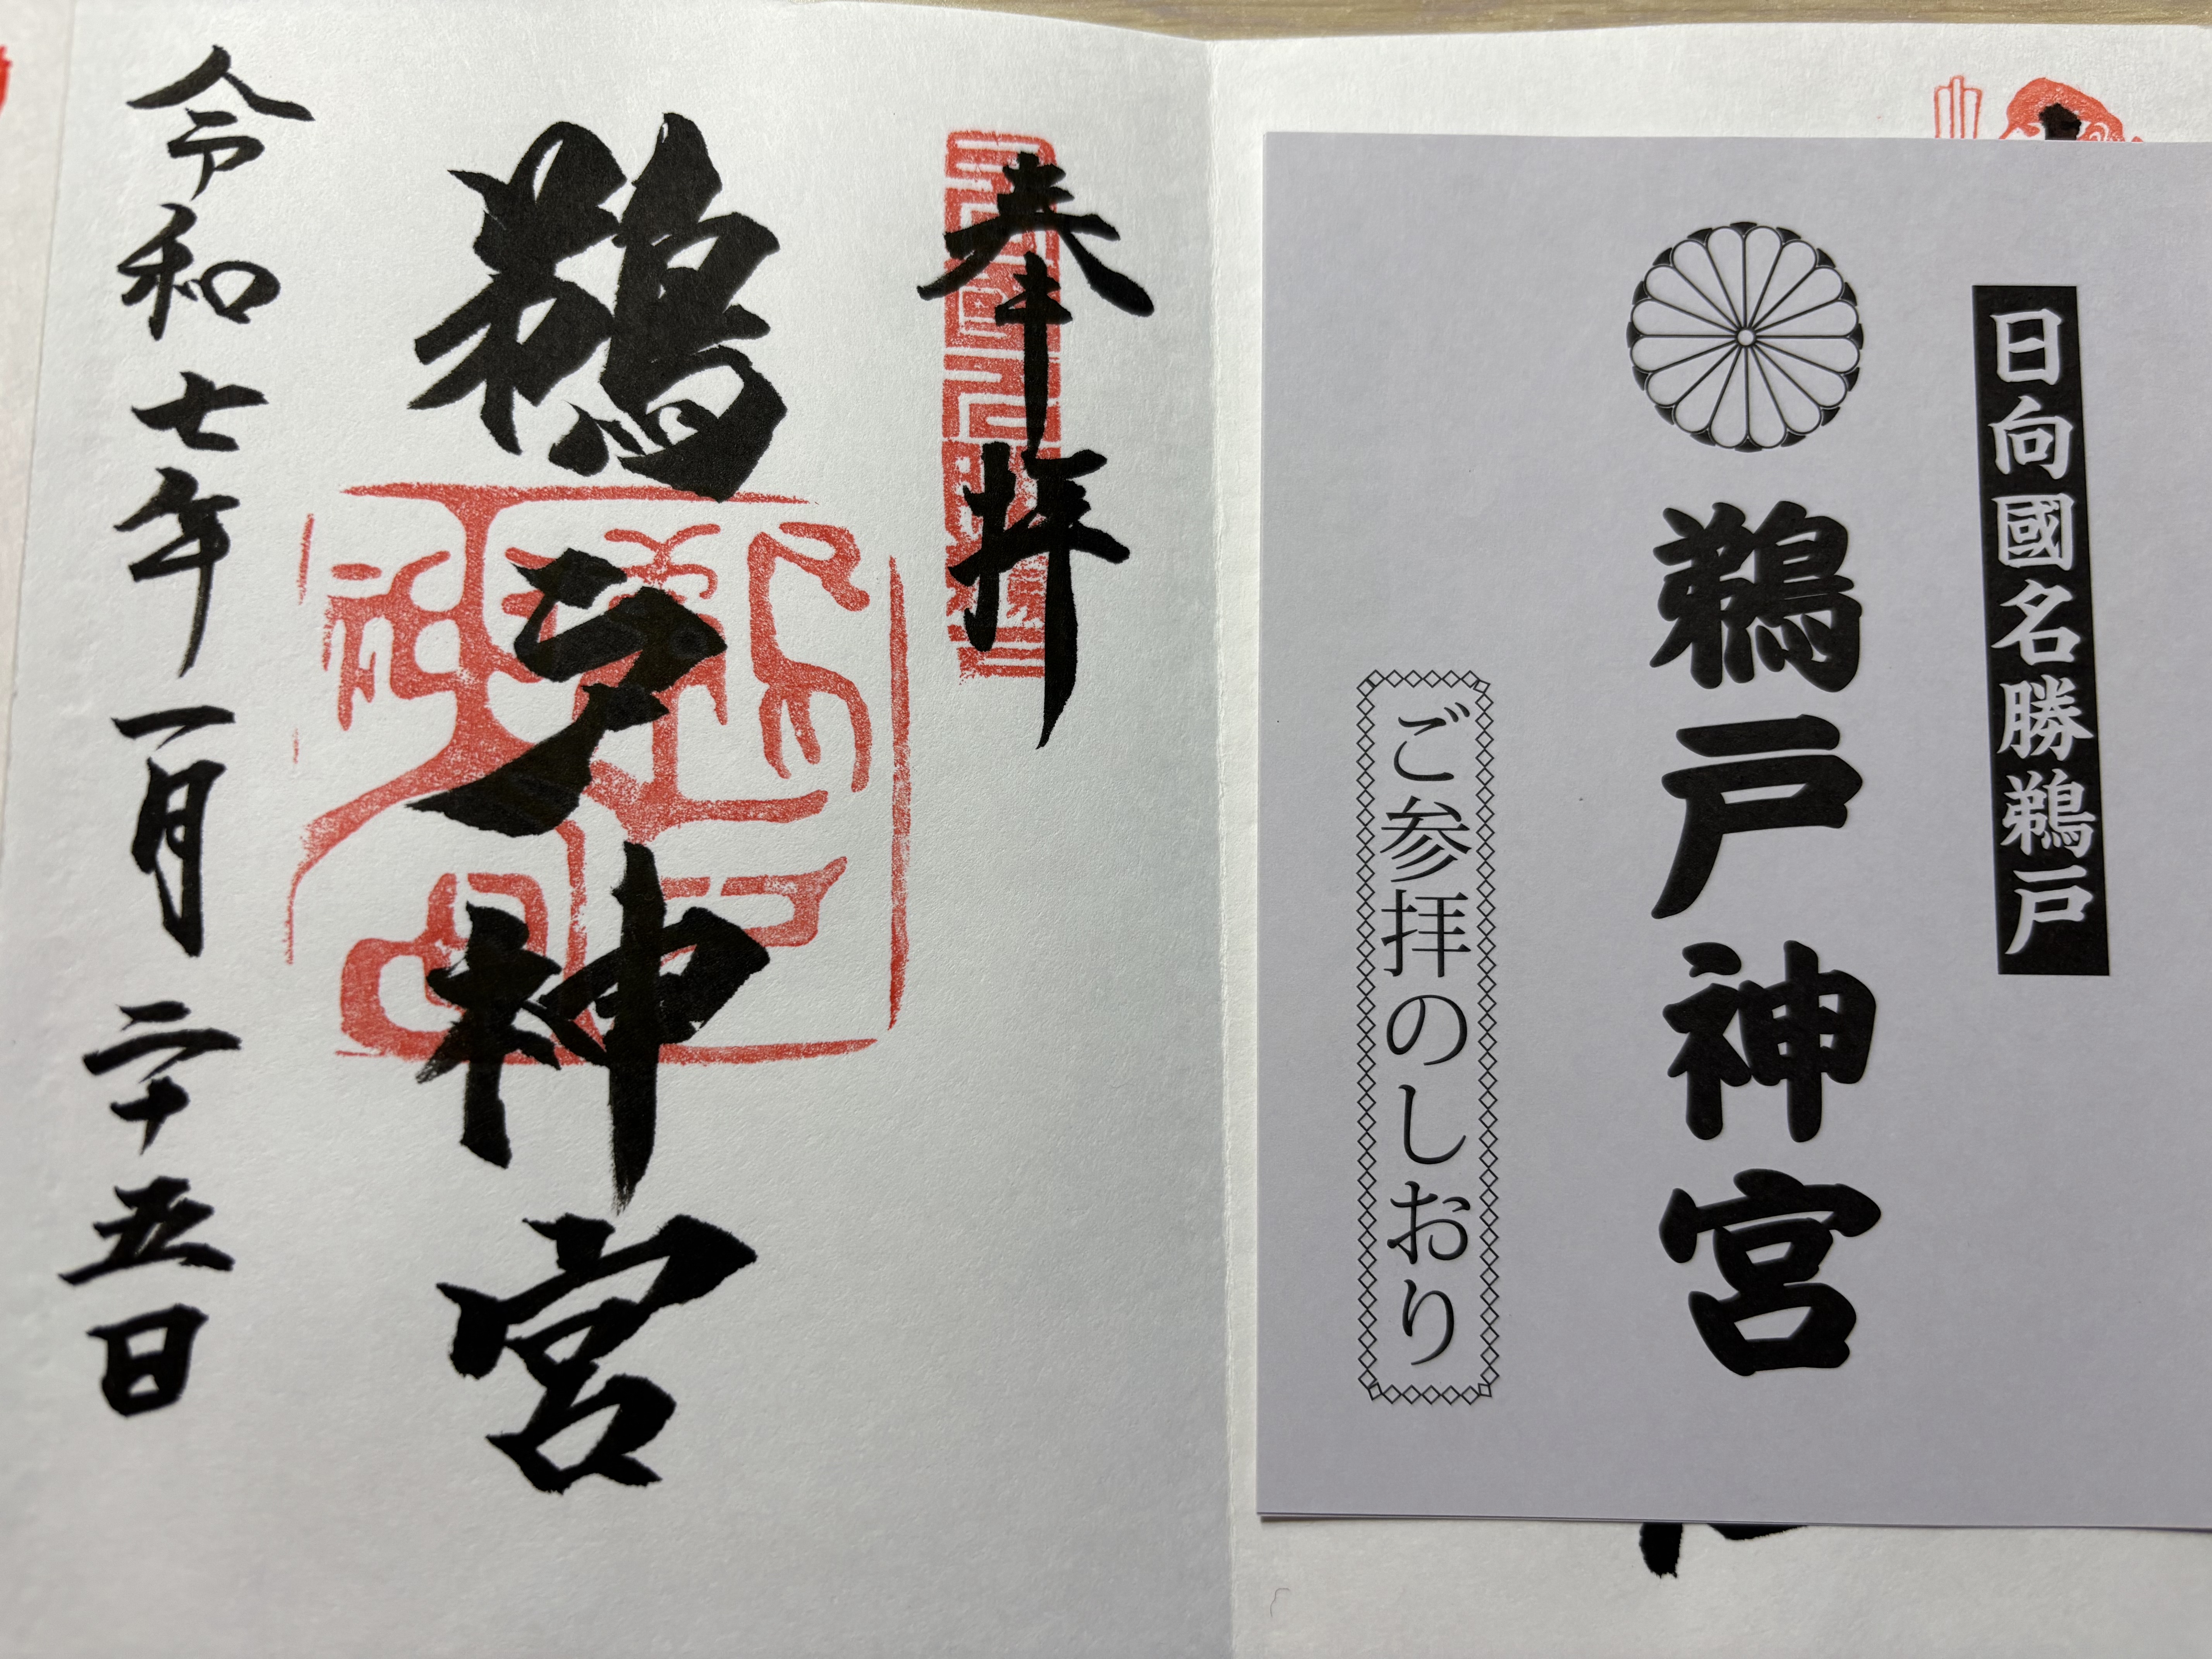 日向國名勝鵜戸
鵜戸神宮
ご参拝のしおり
奉拝
鵜戸神宮
令和七年一月二十五日